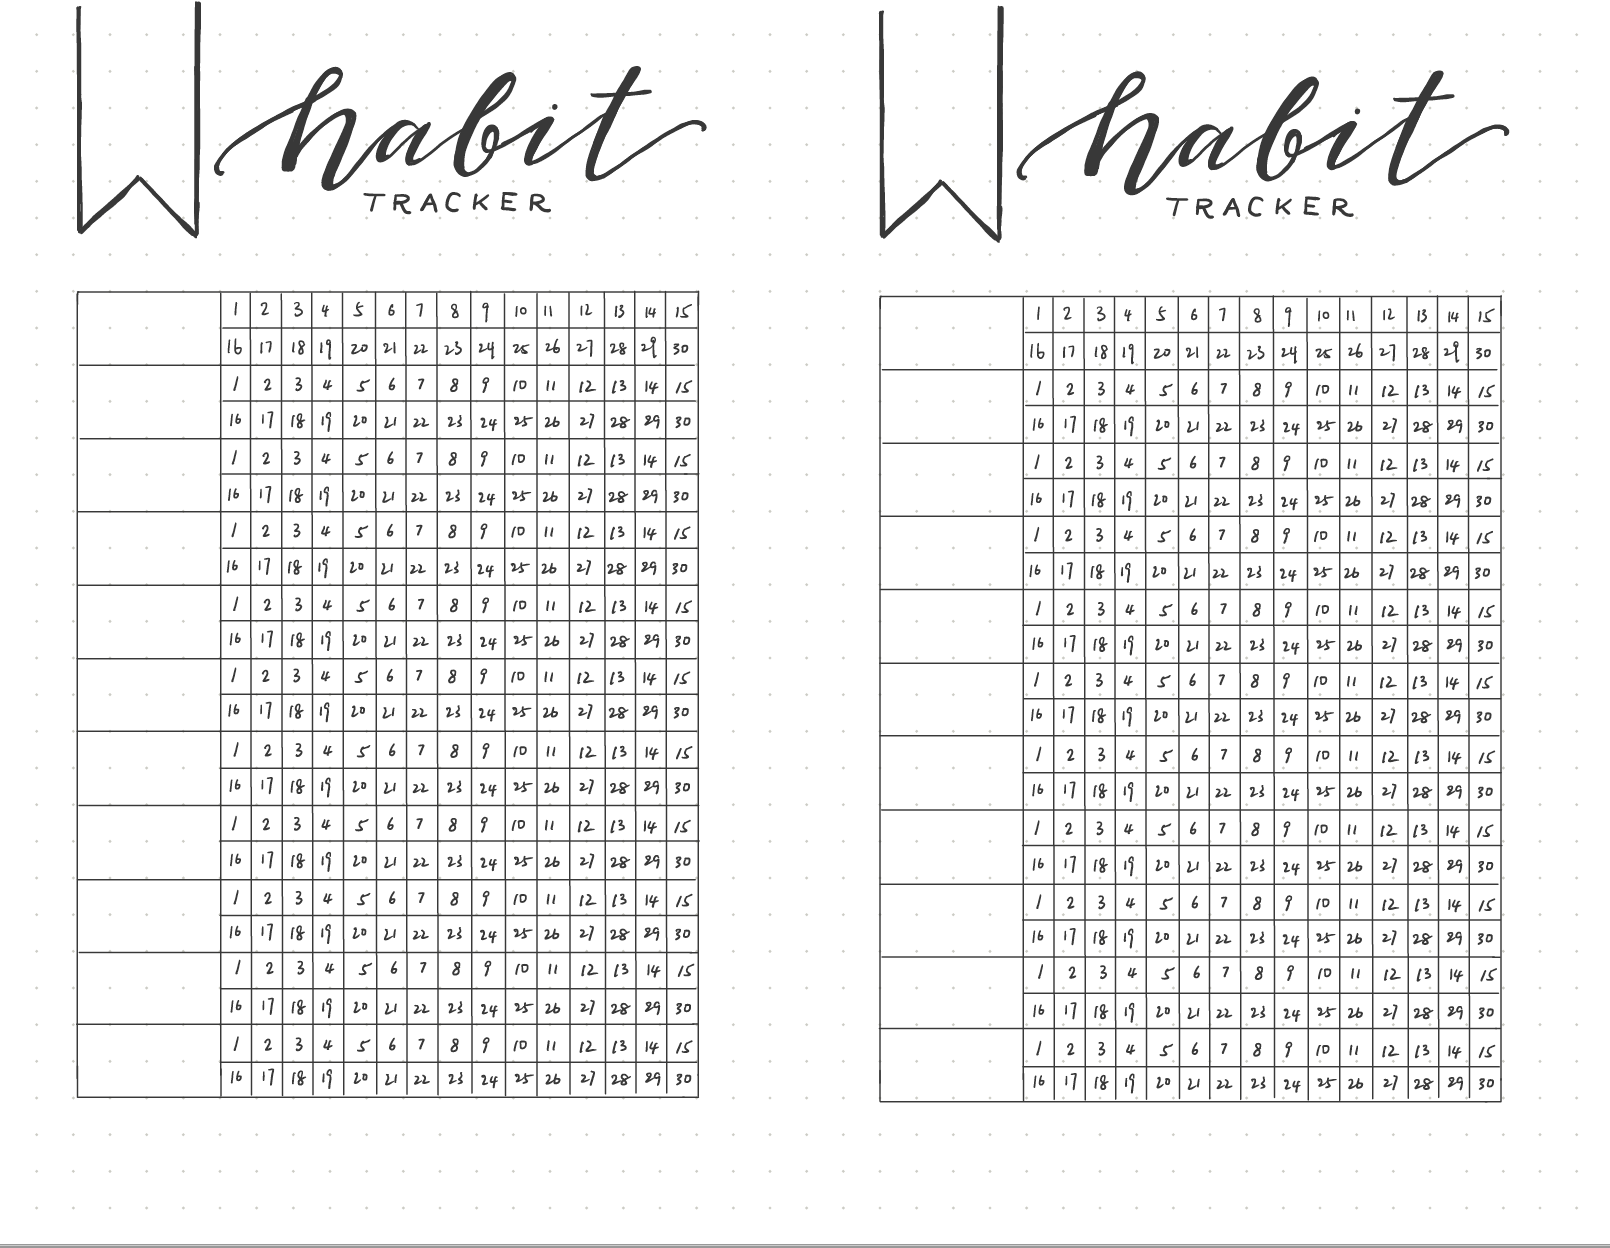 habit
TRACKER
1 2 3 4 5 6 7 8 9 10 11 12 13 14 15
16 17 18 19 20 21 22 23 24 25 26 27 28 29 30
1 2 3 4 5 6 7 8 9 10 11 12 13 14 15
16 17 18 19 20 21 22 23 24 25 26 27 28 29 30
1 2 3 4 5 6 7 8 9 10 11 12 13 14 15
16 17 18 19 20 21 22 23 24 25 26 27 28 29 30
1 2 3 4 5 6 7 8 9 10 11 12 13 14 15
16 17 18 19 20 21 22 23 24 25 26 27 28 29 30
1 2 3 4 5 6 7 8 9 10 11 12 13 14 15
16 17 18 19 20 21 22 23 24 25 26 27 28 29 30
1 2 3 4 5 6 7 8 9 10 11 12 13 14 15
16 17 18 19 20 21 22 23 24 25 26 27 28 29 30
1 2 3 4 5 6 7 8 9 10 11 12 13 14 15
16 17 18 19 20 21 22 23 24 25 26 27 28 29 30
1 2 3 4 5 6 7 8 9 10 11 12 13 14 15
16 17 18 19 20 21 22 23 24 25 26 27 28 29 30
1 2 3 4 5 6 7 8 9 10 11 12 13 14 15
16 17 18 19 20 21 22 23 24 25 26 27 28 29 30
1 2 3 4 5 6 7 8 9 10 11 12 13 14 15
16 17 18 19 20 21 22 23 24 25 26 27 28 29 30
1 2 3 4 5 6 7 8 9 10 11 12 13 14 15
16 17 18 19 20 21 22 23 24 25 26 27 28 29 30
habit
TRACKER
1 2 3 4 5 6 7 8 9 10 11 12 13 14 15
16 17 18 19 20 21 22 23 24 25 26 27 28 29 30
1 2 3 4 5 6 7 8 9 10 11 12 13 14 15
16 17 18 19 20 21 22 23 24 25 26 27 28 29 30
1 2 3 4 5 6 7 8 9 10 11 12 13 14 15
16 17 18 19 20 21 22 23 24 25 26 27 28 29 30
1 2 3 4 5 6 7 8 9 10 11 12 13 14 15
16 17 18 19 20 21 22 23 24 25 26 27 28 29 30
1 2 3 4 5 6 7 8 9 10 11 12 13 14 15
16 17 18 19 20 21 22 23 24 25 26 27 28 29 30
1 2 3 4 5 6 7 8 9 10 11 12 13 14 15
16 17 18 19 20 21 22 23 24 25 26 27 28 29 30
1 2 3 4 5 6 7 8 9 10 11 12 13 14 15
16 17 18 19 20 21 22 23 24 25 26 27 28 29 30
1 2 3 4 5 6 7 8 9 10 11 12 13 14 15
16 17 18 19 20 21 22 23 24 25 26 27 28 29 30
1 2 3 4 5 6 7 8 9 10 11 12 13 14 15
16 17 18 19 20 21 22 23 24 25 26 27 28 29 30
1 2 3 4 5 6 7 8 9 10 11 12 13 14 15
16 17 18 19 20 21 22 23 24 25 26 27 28 29 30
1 2 3 4 5 6 7 8 9 10 11 12 13 14 15
16 17 18 19 20 21 22 23 24 25 26 27 28 29 30